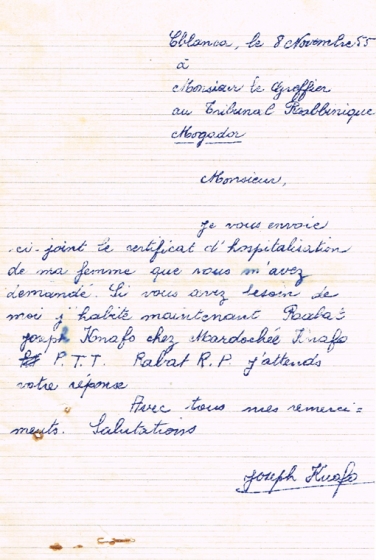 Cblanca, le 8 Novembre 55
à
Monsieur le Greffier
au Tribunal Rabbinique
Mogador
Monsieur,
Je vous envoie
ci-joint le certificat d'hospitalisation
de ma femme que vous m'avez
demandé. Si vous avez besoin de
moi j'habite maintenant Rabat
joseph Knafo chez Mardochée Knafo
P.T.T. Rabat R.P. j'attends
votre réponse
Avec tous mes remerci=
ments. Salutations
joseph Knafo